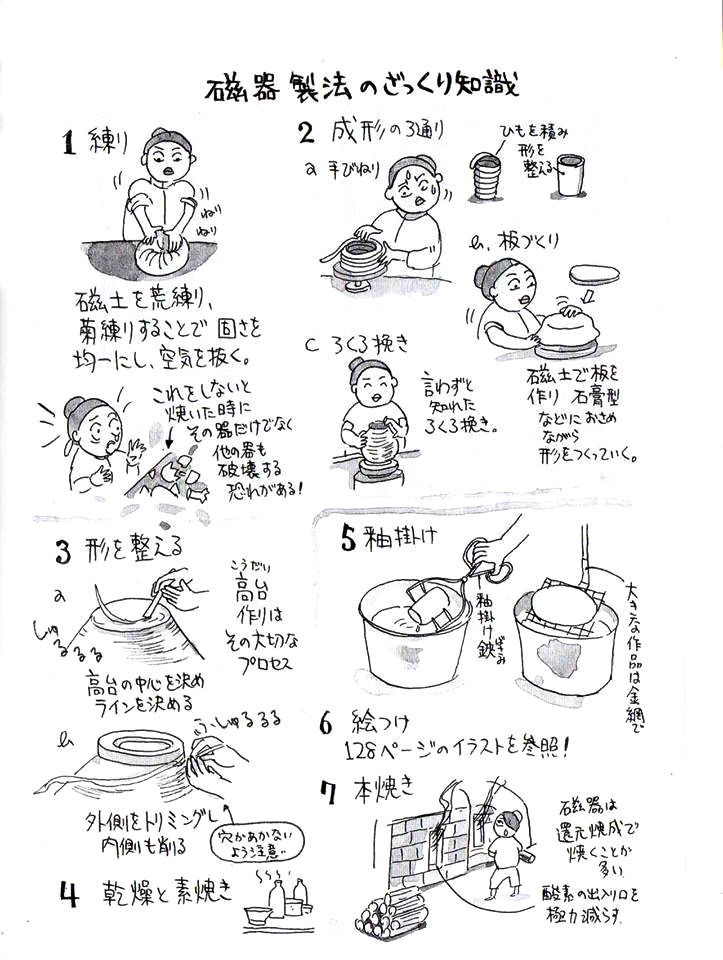 磁器製法のざっくり知識
1 練り
ねり
ねり
磁土を荒練り、
菊練りすることで固さを
均一にし、空気を抜く。
これをしないと
焼いた時に
その器だけでなく
他の器も
破壊する
恐れがある！
2 成形の3通り
a 手びねり
ひもを積み
形を
整える
b. 板づくり
磁土で板を
作り 石膏型
などにおさめ
ながら
形をつくっていく。
c ろくろ挽き
言わずと
知れた
ろくろ挽き。
3 形を整える
a
しゅ
るるる
こうだい
高台
作りは
その大切な
プロセス
高台の中心を決め
ラインを決める
b
ふしゅるるる
外側をトリミングし
内側も削る
穴があかない
よう注意
4 乾燥と素焼き
5 釉掛け
釉掛け
鋏
ばさみ
大きな作品は金網で
6 絵つけ
128ページのイラストを参照！
7 本焼き
磁器は
還元焼成で
焼くことが
多い
酸素の出入り口を
極力減らす